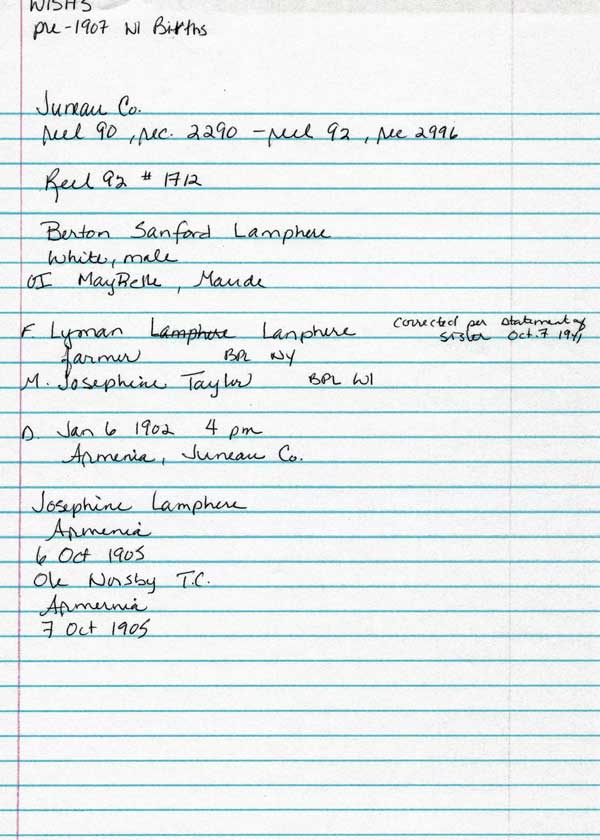 WISHS
pre-1907 WI Births
Juneau Co.
reel 90, rec. 2290 - reel 92, rec 2996
Reel 92 # 1712
Berton Sanford Lamphere
White, male
OI MayBelle, Maude
F. Lyman Lamphere Lanphere Corrected per statement of
sister Oct. 7 1941
farmer BPL NY
M. Josephine Taylor BPL WI
D. Jan 6 1902 4 pm
Armenia, Juneau Co.
Josephine Lamphere
Armenia
6 Oct 1905
Ole Norsby T.C.
Armernia
7 Oct 1905